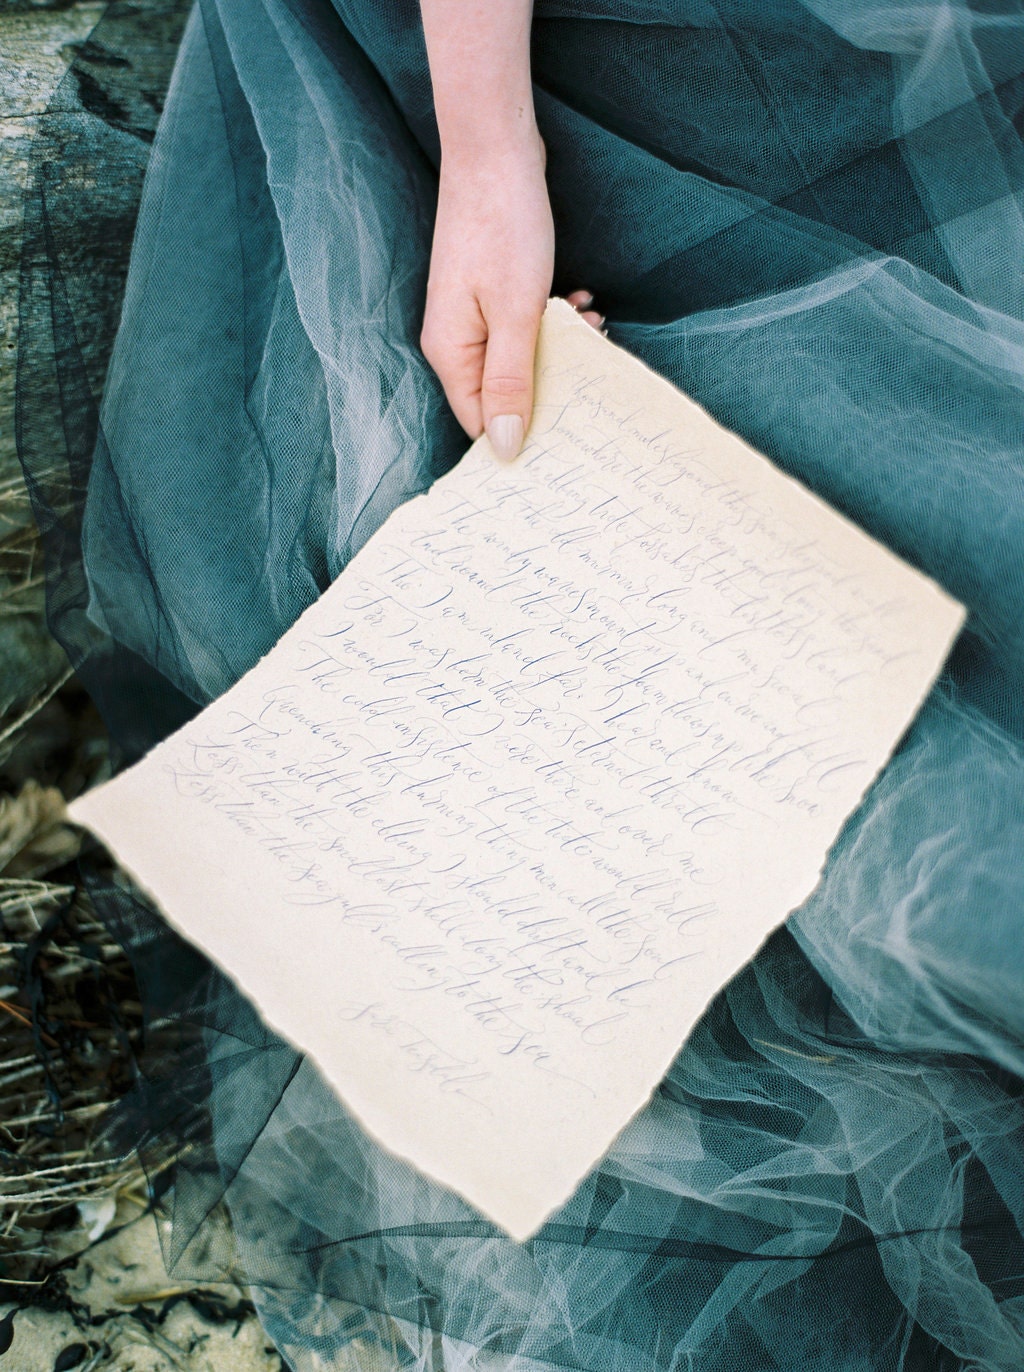 A thousand miles beyond this sun-steeped wall
Somewhere the waves creep cool along the sand
The ebbing tide forsakes the listless land
With the old murmur, long and musical
The windy waves mount up and curve and fall
And round the rocks the foam blows up like snow
Tho' I am inland far, I hear and know
For I was born the sea's eternal thrall
I would that I were there and over me
The cold insistence of the tide would roll
Quenching this burning thing men call the soul
Then with the ebbing I should drift and be
Less than the smallest shell along the shoal
Less than the sea gulls calling to the sea
Sara Teasdale